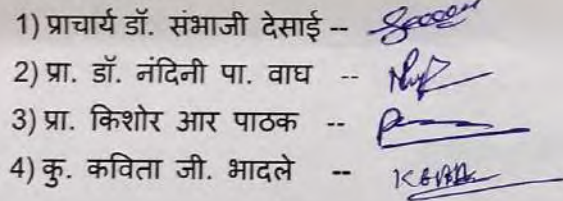 1) प्राचार्य डॉ. संभाजी देसाई --
2) प्रा. डॉ. नंदिनी पा. वाघ --
3) प्रा. किशोर आर पाठक --
4) कु. कविता जी. भादले --